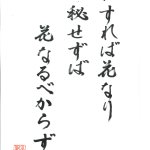 すれば花なり
秘せずば
花なるべからず